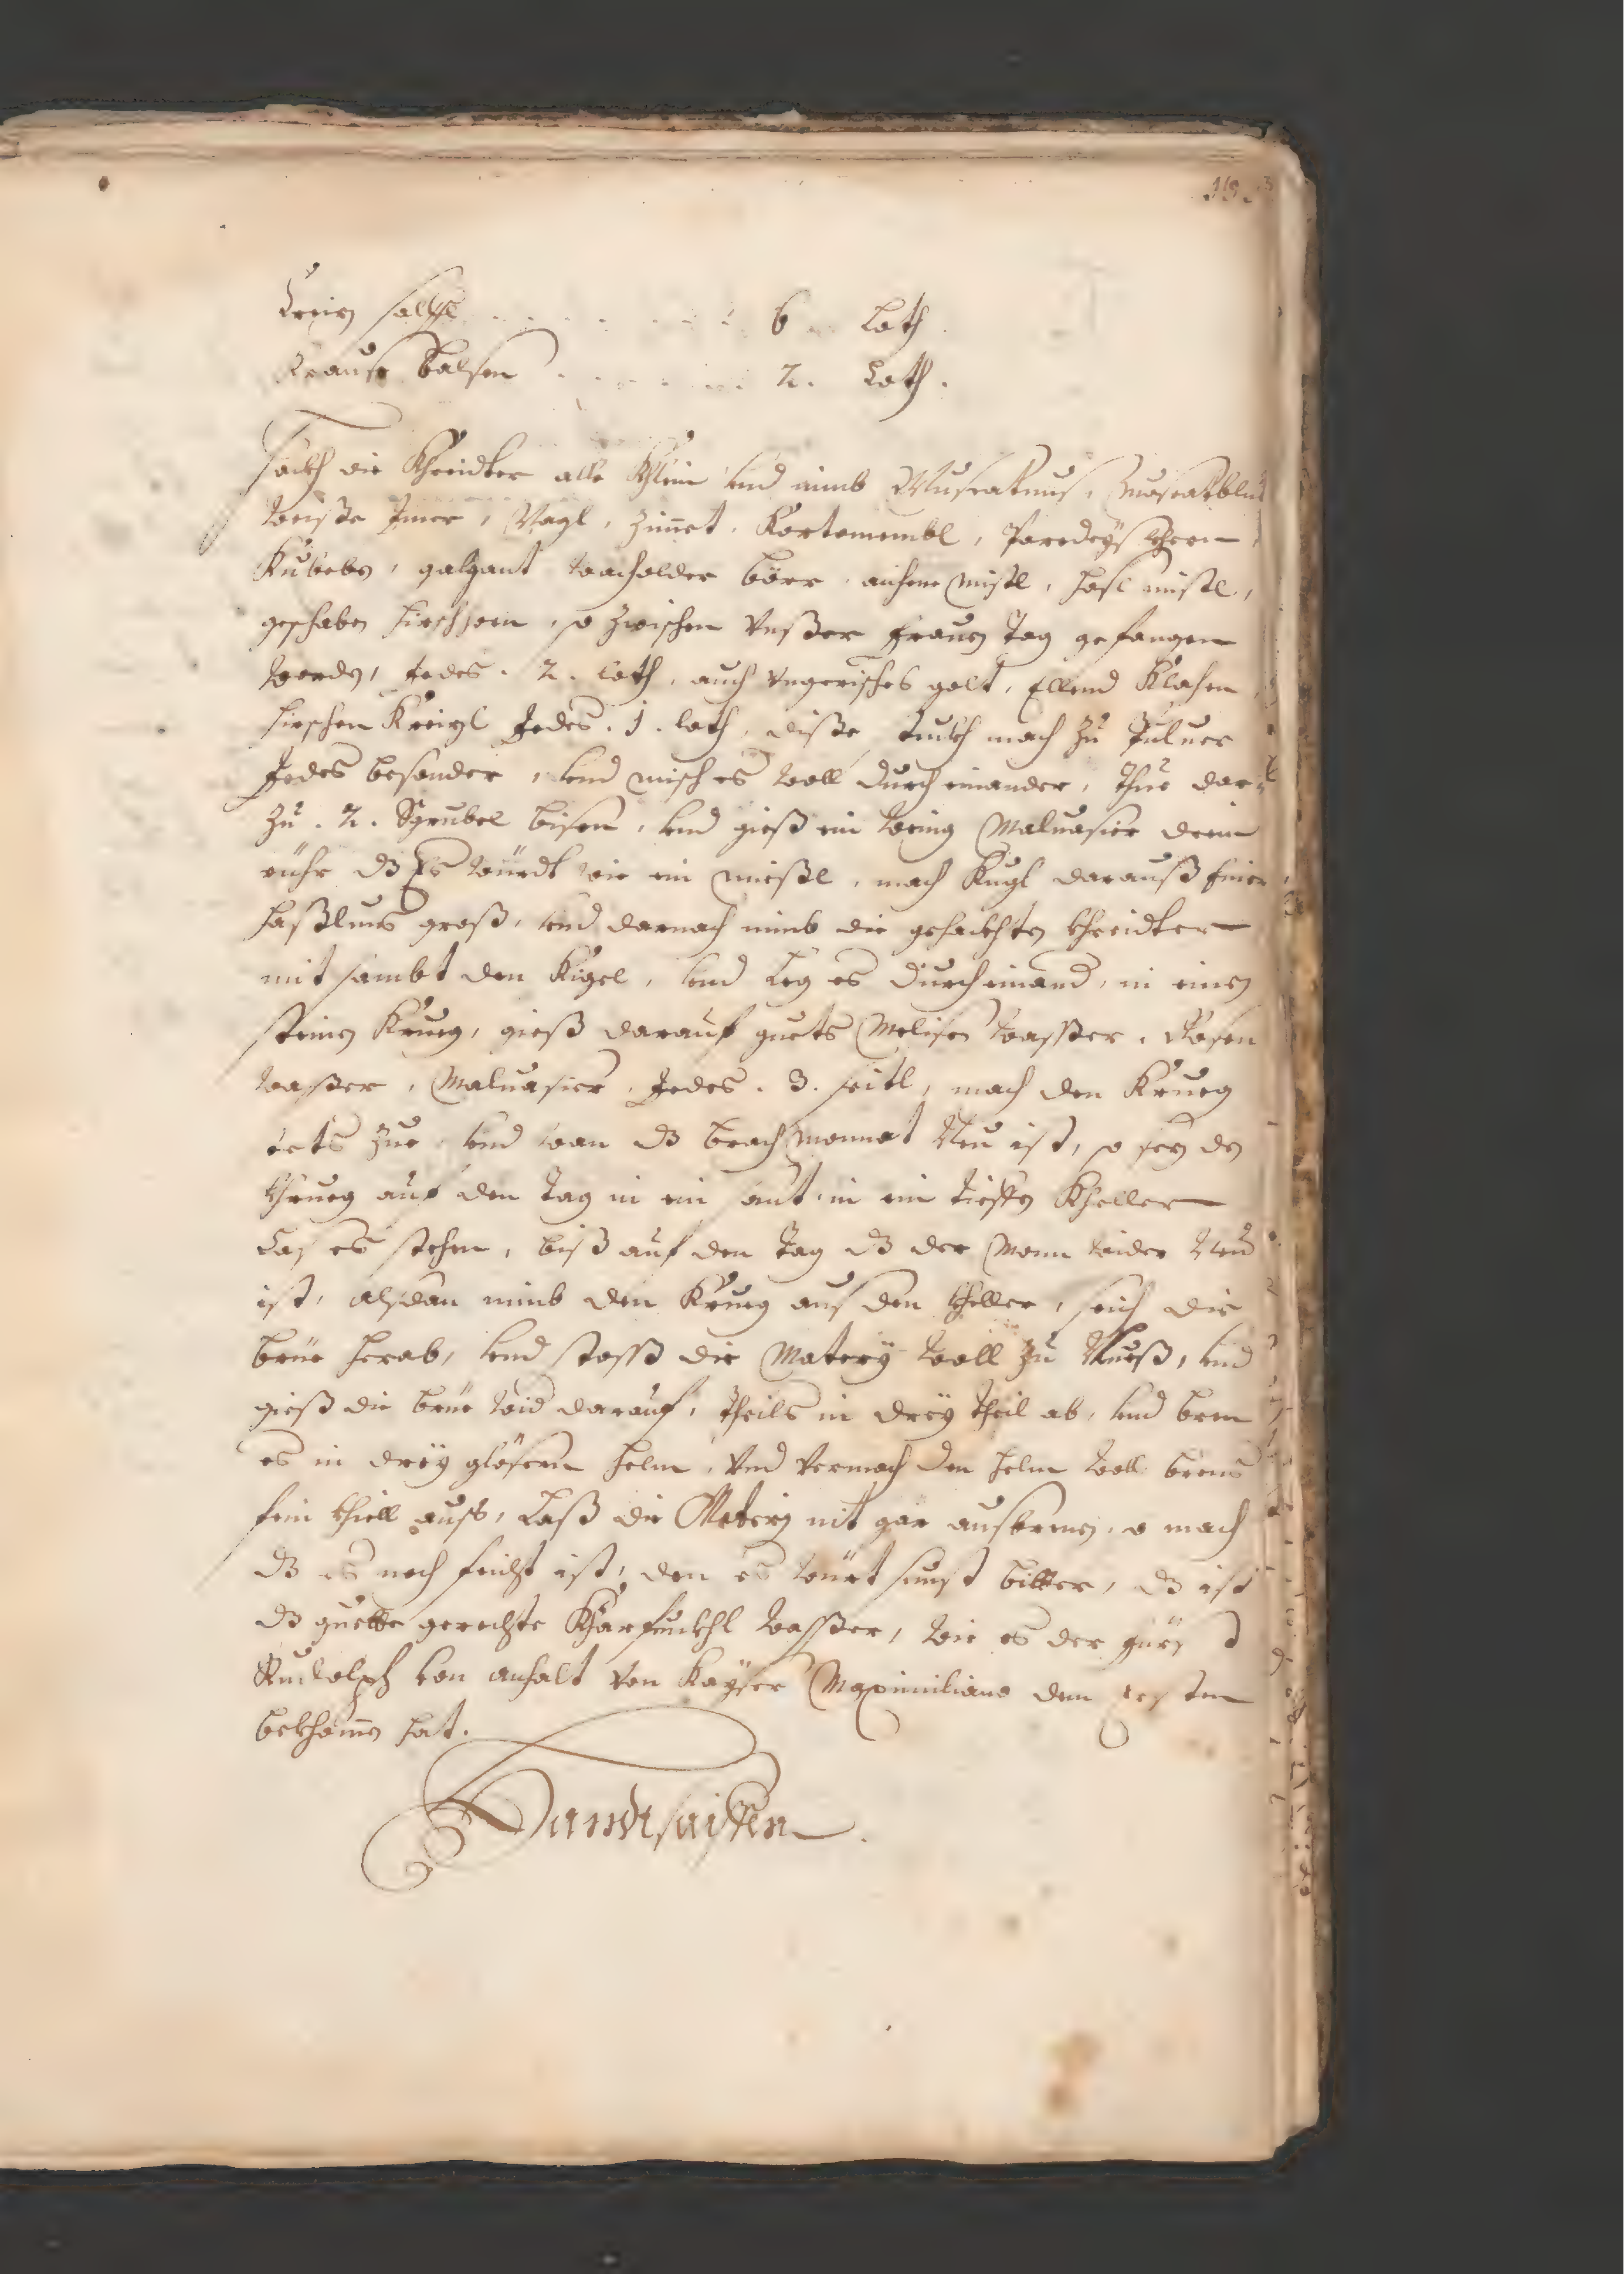 Creiz salffl . . . . . . . 6 . Loth .
Krause balsen . . . . . . 2 . Loth .
Hackh die Khreidter alle Khlein vnd nimb Muscatnus, Muscatblüe
weisße Imer, Nagl, Zim̄et, Kortemembl, Paredeyß Khern
Kubeben, galgant wacholder börr, aichene mistl, hasl mistl,
geschaben hirschhorn, so zwischen Vnßer frauen Tag gefangen
werden, Jedes . 2 . loth, auch Vngerisches golt, Ellend Klahen
hirschen Kreizl Jedes . 1 . loth, disße stuckh mach zu Puluer
Jedes besonder, vnd misch es woll durch einander, thue dar
zu . 2 . Scrubel bisem, vnd gieß ein wenig Maluasier drein
rühr dz Es würdt wie ein müeßl, mach Kugl darauß einer
haßlnus groß, vnd darnach nimb die gehackhten khreidter
mit sambt den Kigel, vnd leg es durcheinand, in einen
steinen Krueg, gieß darauf guets Melisen wasßer, Rosen
waßer, Maluasier, Jedes . 3 . seitl, mach den Krueg
vets zue vnd wan dz brach Monnat Neu ist, so sez den
khrueg auf den Tag in ein sant in ein tieffen Kheller
Las es stehen, biß auf den Tag dz der Mann wider Neu
ist, alsdan nimb den Krueg aus den kheller, seich die
brüe herab, vnd stosß die Matery woll zu Mueß, vnd
gieß die brüe wid darauf, theils in drey theil ab, vnd bren
es in drey gläsern helm, vnd vermach den helm woll brens
fein khiell auß, Laß die Matery nit gar ausbrenen, so mach
dz es noch feicht ist, den es würt sunst bitter, dz ist
dz guette gerechte Kharfunckhl wasßer, wie es der fürst
Rudolph von anhalt von Kayser Maximiliano dem ersten
bekhom̄en hat.
Handtsaiffen